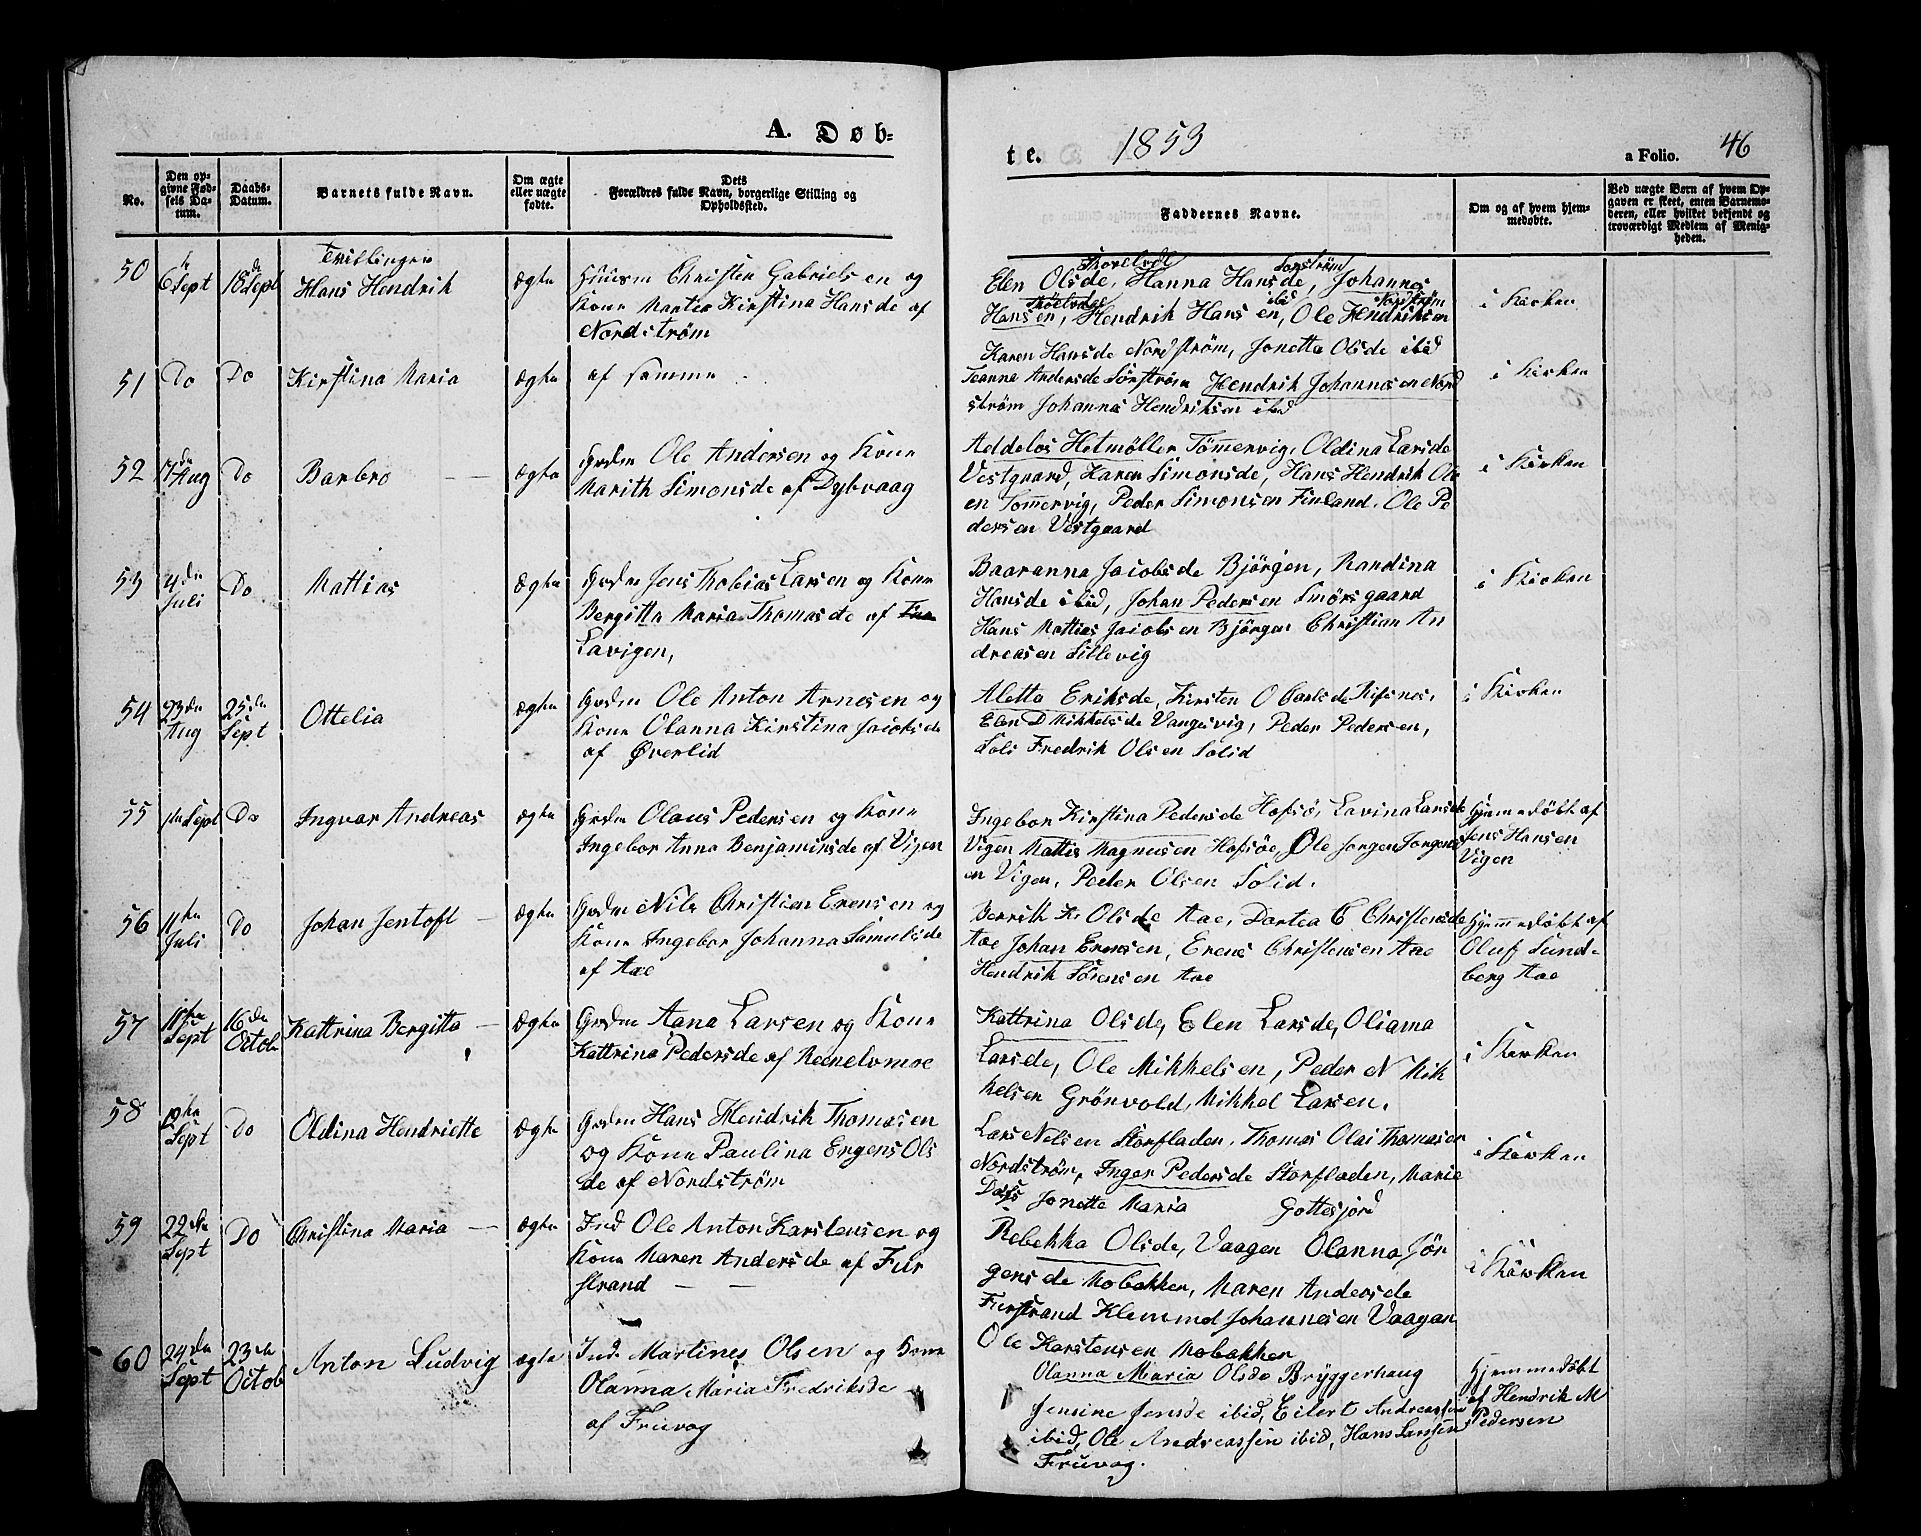 A. Døb-
te. 1853
a Folio. 46
No.
Den op-
givne Fød-
sels Da-
tum.
Daabs-
Datum.
Barnets fulde Navn.
Om ægte
eller uægte
fødte.
Dets
Forældres fulde Navn, borgerlige Stilling og
Opholdssted.
Faddernes Navne.
Om og af hvem hjem-
medøbte.
Ved uægte Børn af hvem Op-
gaven er skeet, enten Barnemo-
deren, eller hvilket bekjendt og
troværdigt Medlem af Menig-
heden.
50
6 Sept
18de Sept
Tvillinger
Hans Hendrik
Ægte
Huusm Christen Gabrielsen og
Kone Martia Kirstina Hansde af
Nordstrøm
Elen Olsde, Hanna Hansde, Johannes
Hansen, Hendrik Hansen, Ole Hendriksen
i Kirken
51
Do
Do
Kirstina Maria
Ægte
af samme
Karen Hansde Nordstrøm, Jonetta Olsde ibid
Jeanna Andersde Sørstrøm Hendrik Johannesen Nord
strøm Johannes Hendriksen ibid
i Kirken
52
Aug
Do
Barbro
Ægte
Grdm Ole Andersen og Kone
Marith Simonsde af Dybvaag
Addelos Hetmøller Tømmervig, Oldina Larsde
Vestgaard, Karen Simonsde, Hans Hendrik Ols
en Tommervig, Peder Simonsen Finland. Ole Pe
dersen Vestgaard
i Kirken
53
4de
Juli
Do
Mattias
Ægte
Grdm Jens Tobias Larsen og Kone
Bergitta Maria Thomasde af
Lavigen,
Baaranna Jacobsde Bjørgen, Randina
Hansde ibid, Johan Pedersen Smørsgaard
Hans Mattias Jacobsen Bjørgen Christian An
dreasen Sillevig
i Kirken
54
23de
Aug
25de
Sept
Ottelia
Ægte
Grdm Ole Anton Arnesen og
Kone Olanna Kirstina Jacobsde
af Øverlid
Aletta Eriksde, Kirsten O Carlsde Rifsnes,
Elen D Mikkelsde Vangsvig, Peder Pedersen,
Soli Fredrik Olsen Solid
i Kirken
55
1te Sept
Do
Ingvar Andreas
Ægte
Grdm Olaus Pedersen og Kone
Ingebor Anna Benjaminsde af Vigen
Ingebor Kirstina Pedersde Hofsø, Lavina Larsde
Vigen Mattis Magnusen Hofsøe, Ole Jørgen Jørgens
en Vigen, Peder Olsen Solid.
Hjemmedøbt af
Jens Hansen
Vigen
56
11te
Juli
Do
Johan Jentoft
Ægte
Grdm Nils Christian Erensen og
Kone Ingebor Johanna Samulsde
af Aae
Berrith K. Olsde Aae, Dortea C Christensde
Aae Johan Erensen, Erens Christensen Aae
Hendrik Sørensen Aae
Hjemmedøbt af
Oluf Lund-
berg Aae
57
Sept
16de
Octob
Kattrina Bergitta
Ægte
Grdm Aana Larsen og Kone
Kattrina Pedersde af Meenelvmoe
Kattrina Olsde, Elen Larsde, Oliama
Larsde, Ole Mikkelsen, Peder N Mik
kelsen Grønvold, Mikkel Larsen.
i Kirken
58
Sept
Do
Oldina Hendriette
Ægte
Grdm Hans Hendrik Thomasen
og Kone Paulina Ergens Ols
de af Nordstrøm
Lars Nelsen Storfladen, Thomas Olai Thomasen
Nordstrøm, Inger Pedersde Storfladen, Marie
Dass Jonette Maria Gottesjord
i Kirken
59
22de
Sept
Do
Christina Maria
Ægte
Ind Ole Anton Karstensen og
Kone Maren Andersde af Fur
strand
Rebekka Olsde, Vaagen Olanna Jør
gensde Mobakken, Maren Andersde
Furstrand Klemmed Johannesen Vaagan
Ole Karstensen Mobakken
i Kirken
60
24de
Sept
23de
Octob
Anton Ludvig
ægte
Ind. Martines Olsen og Kone
Olanna Maria Fredriksde
af Fruvog
Olanna Maria Olsde Bryggerhaug
Jensine Jensde ibid, Eilert Andreassen
ibid, Ole Andreassen ibid, Hans Larssen
Fruvog.
Hjemmedøbt
af Hendrik M
Pedersen